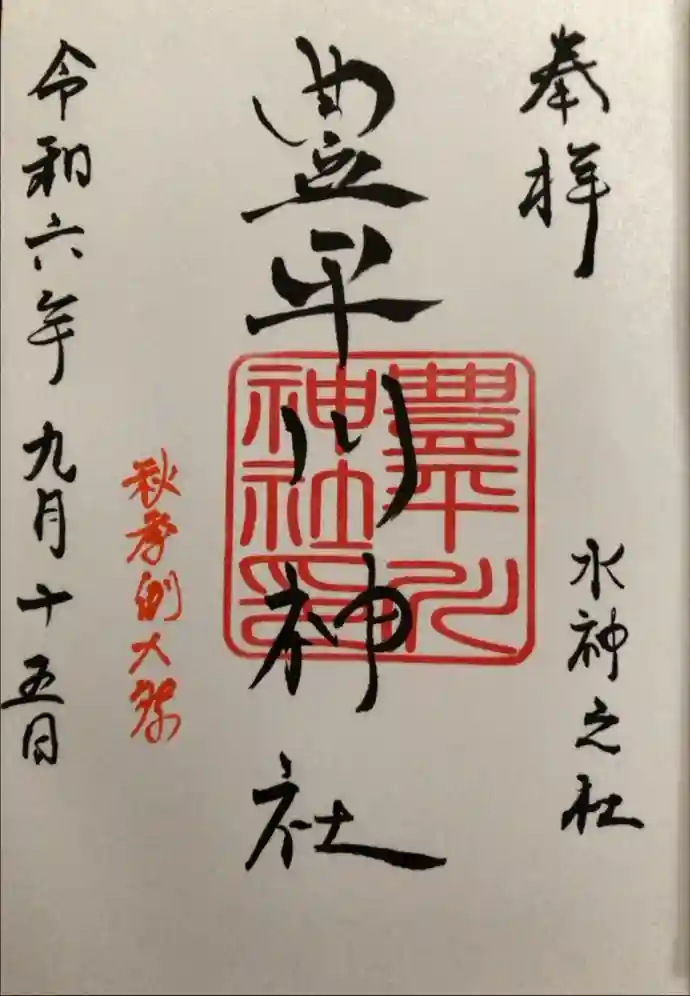 奉拝
水神之社
豊平川神社
豊平川
神社印
秋季例大祭
令和六年九月十五日